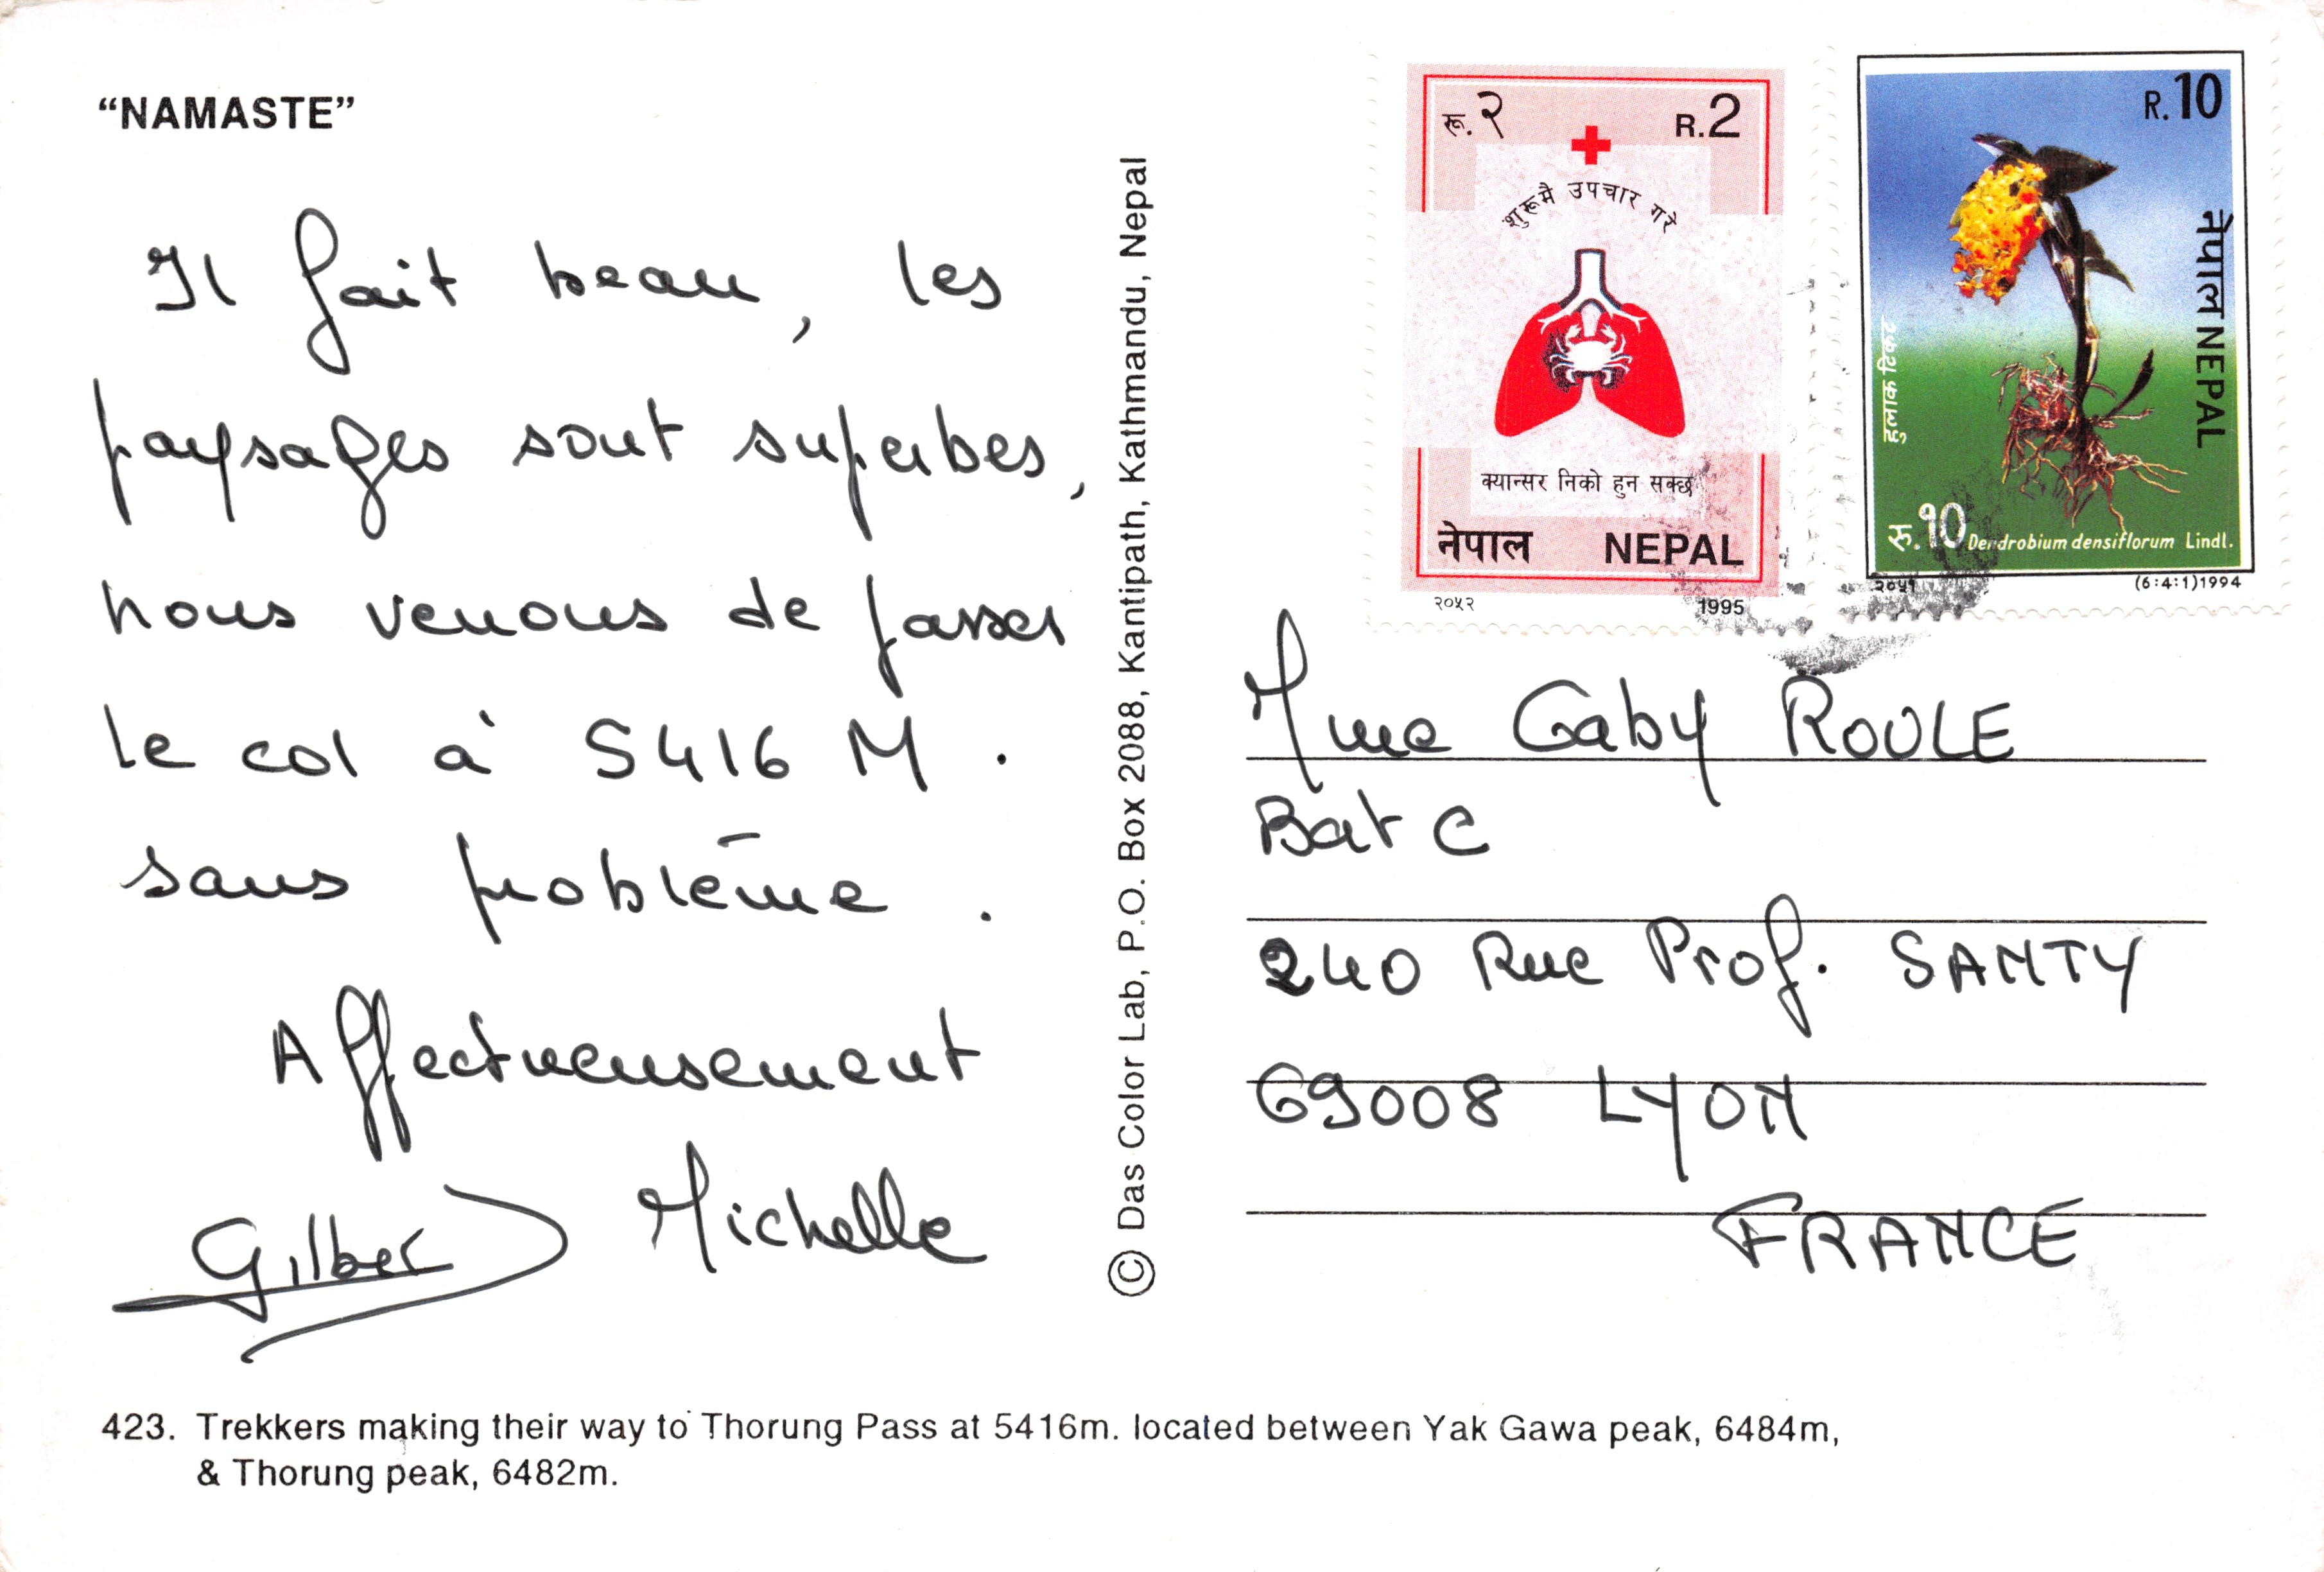 “NAMASTE”
Il fait beau, les
paysages sont superbes,
nous venons de passer
le col à 5416 M.
sans problème.
Affectueusement
Gilbert Michelle
423. Trekkers making their way to Thorung Pass at 5416m. located between Yak Gawa peak, 6484m,
& Thorung peak, 6482m.
© Das Color Lab, P.O. Box 2088, Kantipath, Kathmandu, Nepal
रू. २ R.2
शुरूमै उपचार गरे
क्यान्सर निको हुन सक्छ
नेपाल NEPAL
२०५२ 1995
R.10
नेपाल NEPAL
हुलाक टिकट
रु. १० Dendrobium densiflorum Lindl.
२०५१ (6:4:1)1994
Mme Gaby ROULE
Bat C
240 Rue Prof. SANTY
69008 LYON
FRANCE